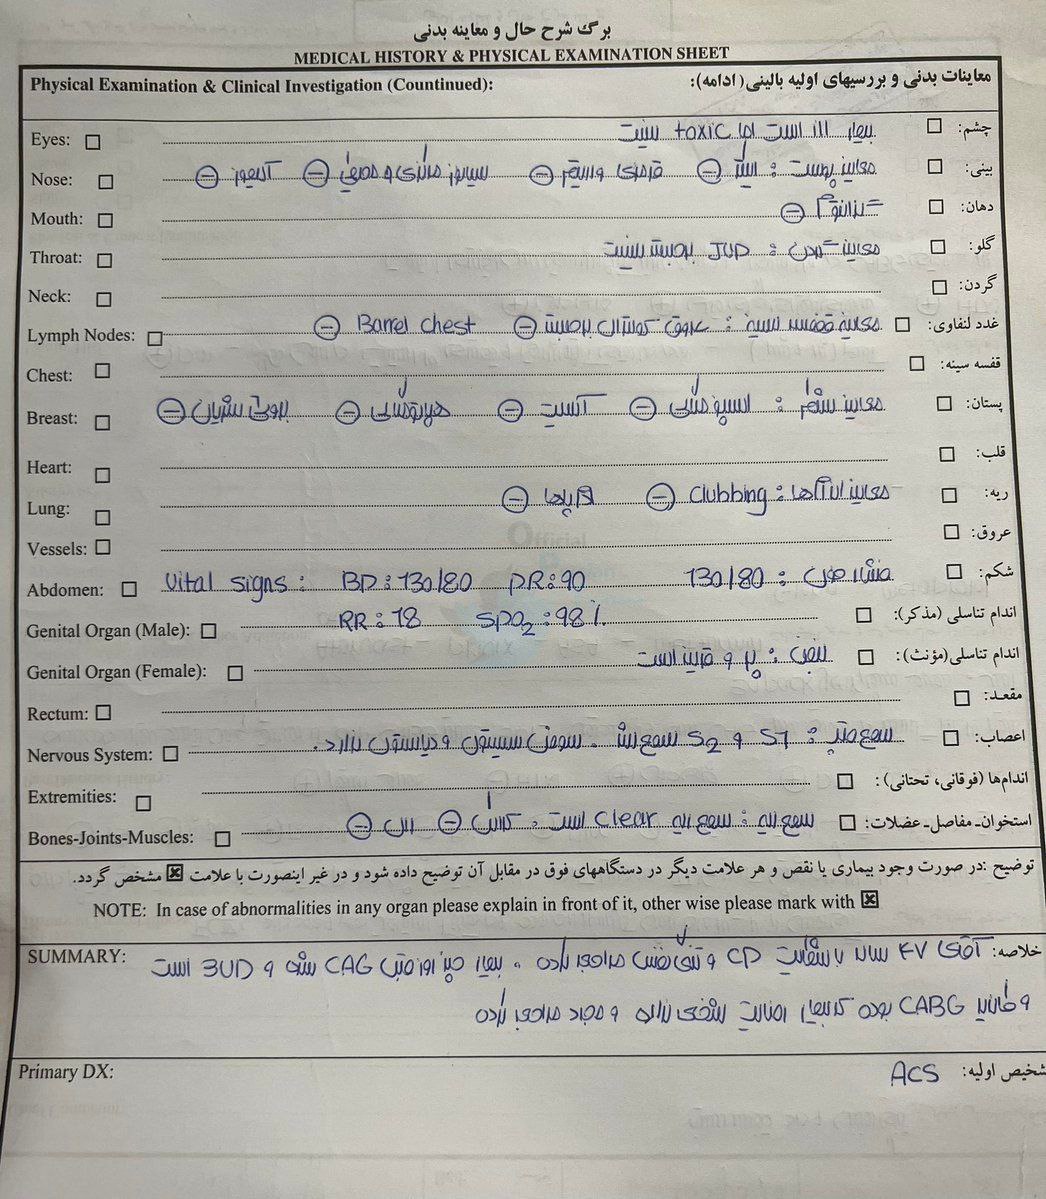 برگ شرح حال و معاینه بدنی
MEDICAL HISTORY & PHYSICAL EXAMINATION SHEET
Physical Examination & Clinical Investigation (Countinued): معاینات بدنی و بررسیهای اولیه بالینی (ادامه):
Eyes: بیمار ill است اما toxic نیست چشم:
Nose: معاینه پوست: ایکتر ⊖ قرمزی وسیع ⊖ سیانوز مرکزی و محیطی ⊖ بینی:
Mouth: گزانتوم ⊖ دهان:
Throat: معاینه گردن: JVP برجسته نیست گلو:
Neck: گردن:
Lymph Nodes: معاینه قفسه سینه: عروق کولترال برجسته ⊖ Barrel chest ⊖ غدد لنفاوی:
Chest: قفسه سینه:
Breast: معاینه شکم: اسپلنومگالی ⊖ آسیت ⊖ هپاتومگالی ⊖ بروئی شریان ⊖ پستان:
Heart: قلب:
Lung: معاینه اندام‌ها: clubbing ⊖ ⊖ ریه:
Vessels: عروق:
Abdomen: Vital signs: BP: 130/80 PR: 90 فشار خون: 130/80 شکم:
RR: 18 SpO2: 98%
Genital Organ (Male): اندام تناسلی (مذکر):
Genital Organ (Female): نبض: پر و قرینه است اندام تناسلی (مؤنث):
Rectum: مقعد:
Nervous System: سمع قلب: S1 و S2 سمع شد. سوفل سیستول و دیاستول ندارد. اعصاب:
Extremities: اندام‌ها (فوقانی، تحتانی):
Bones-Joints-Muscles: سمع ریه: سمع ریه clear است. کراکل ⊖ رال ⊖ استخوان-مفاصل-عضلات:
توضیح: در صورت وجود بیماری یا نقص و هر علامت دیگر در دستگاههای فوق در مقابل آن توضیح داده شود و در غیر اینصورت با علامت ☒ مشخص گردد.
NOTE: In case of abnormalities in any organ please explain in front of it, other wise please mark with ☒
SUMMARY: خلاصه: آقای 47 ساله با شکایت CP و تنگی نفس مراجعه کرده. بیمار چند روز قبل CAG شده و 3VD است
و کاندید CABG بوده که بیمار رضایت شخصی داده و مجدد مراجعه کرده
Primary DX: تشخیص اولیه: ACS